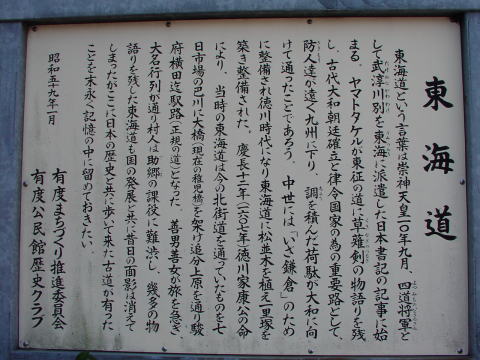 東海道
東海道という言葉は崇神天皇一〇年九月、四道将軍と
して武渟川別を東海に派遣した日本書記の記事に始
まる。ヤマトタケルが東征の道に草薙剣の物語りを残
し、古代大和朝廷確立と律令国家の為の重要路として、
防人達が遠く九州に下り、調を積んだ荷駄が大和に向
けて通ったことであろう。中世には「いざ鎌倉」のため
に整備され徳川時代になり東海道に松並木を植え一里塚を
築き整備された。慶長十二年(一六〇七年)徳川家康公の命
により、当時の東海道は今の北街道を通っていたものを七
日市場の巴川に大橋(現在の稚児橋)を架け追分上原を通り駿
府横田迄駅路(正規の道)となった。善男善女が旅を急ぎ
大名行列が通り村人は助郷の課役に難渋し、幾多の物
語りを残した東海道も国の発展と共に昔日の面影は消えて
しまったがここに日本の歴史と共に歩いて来た古道が有った
ことを末永く記憶の中に留めておきたい。
昭和五十九年一月
有度まちづくり推進委員会
有度公民館歴史クラブ